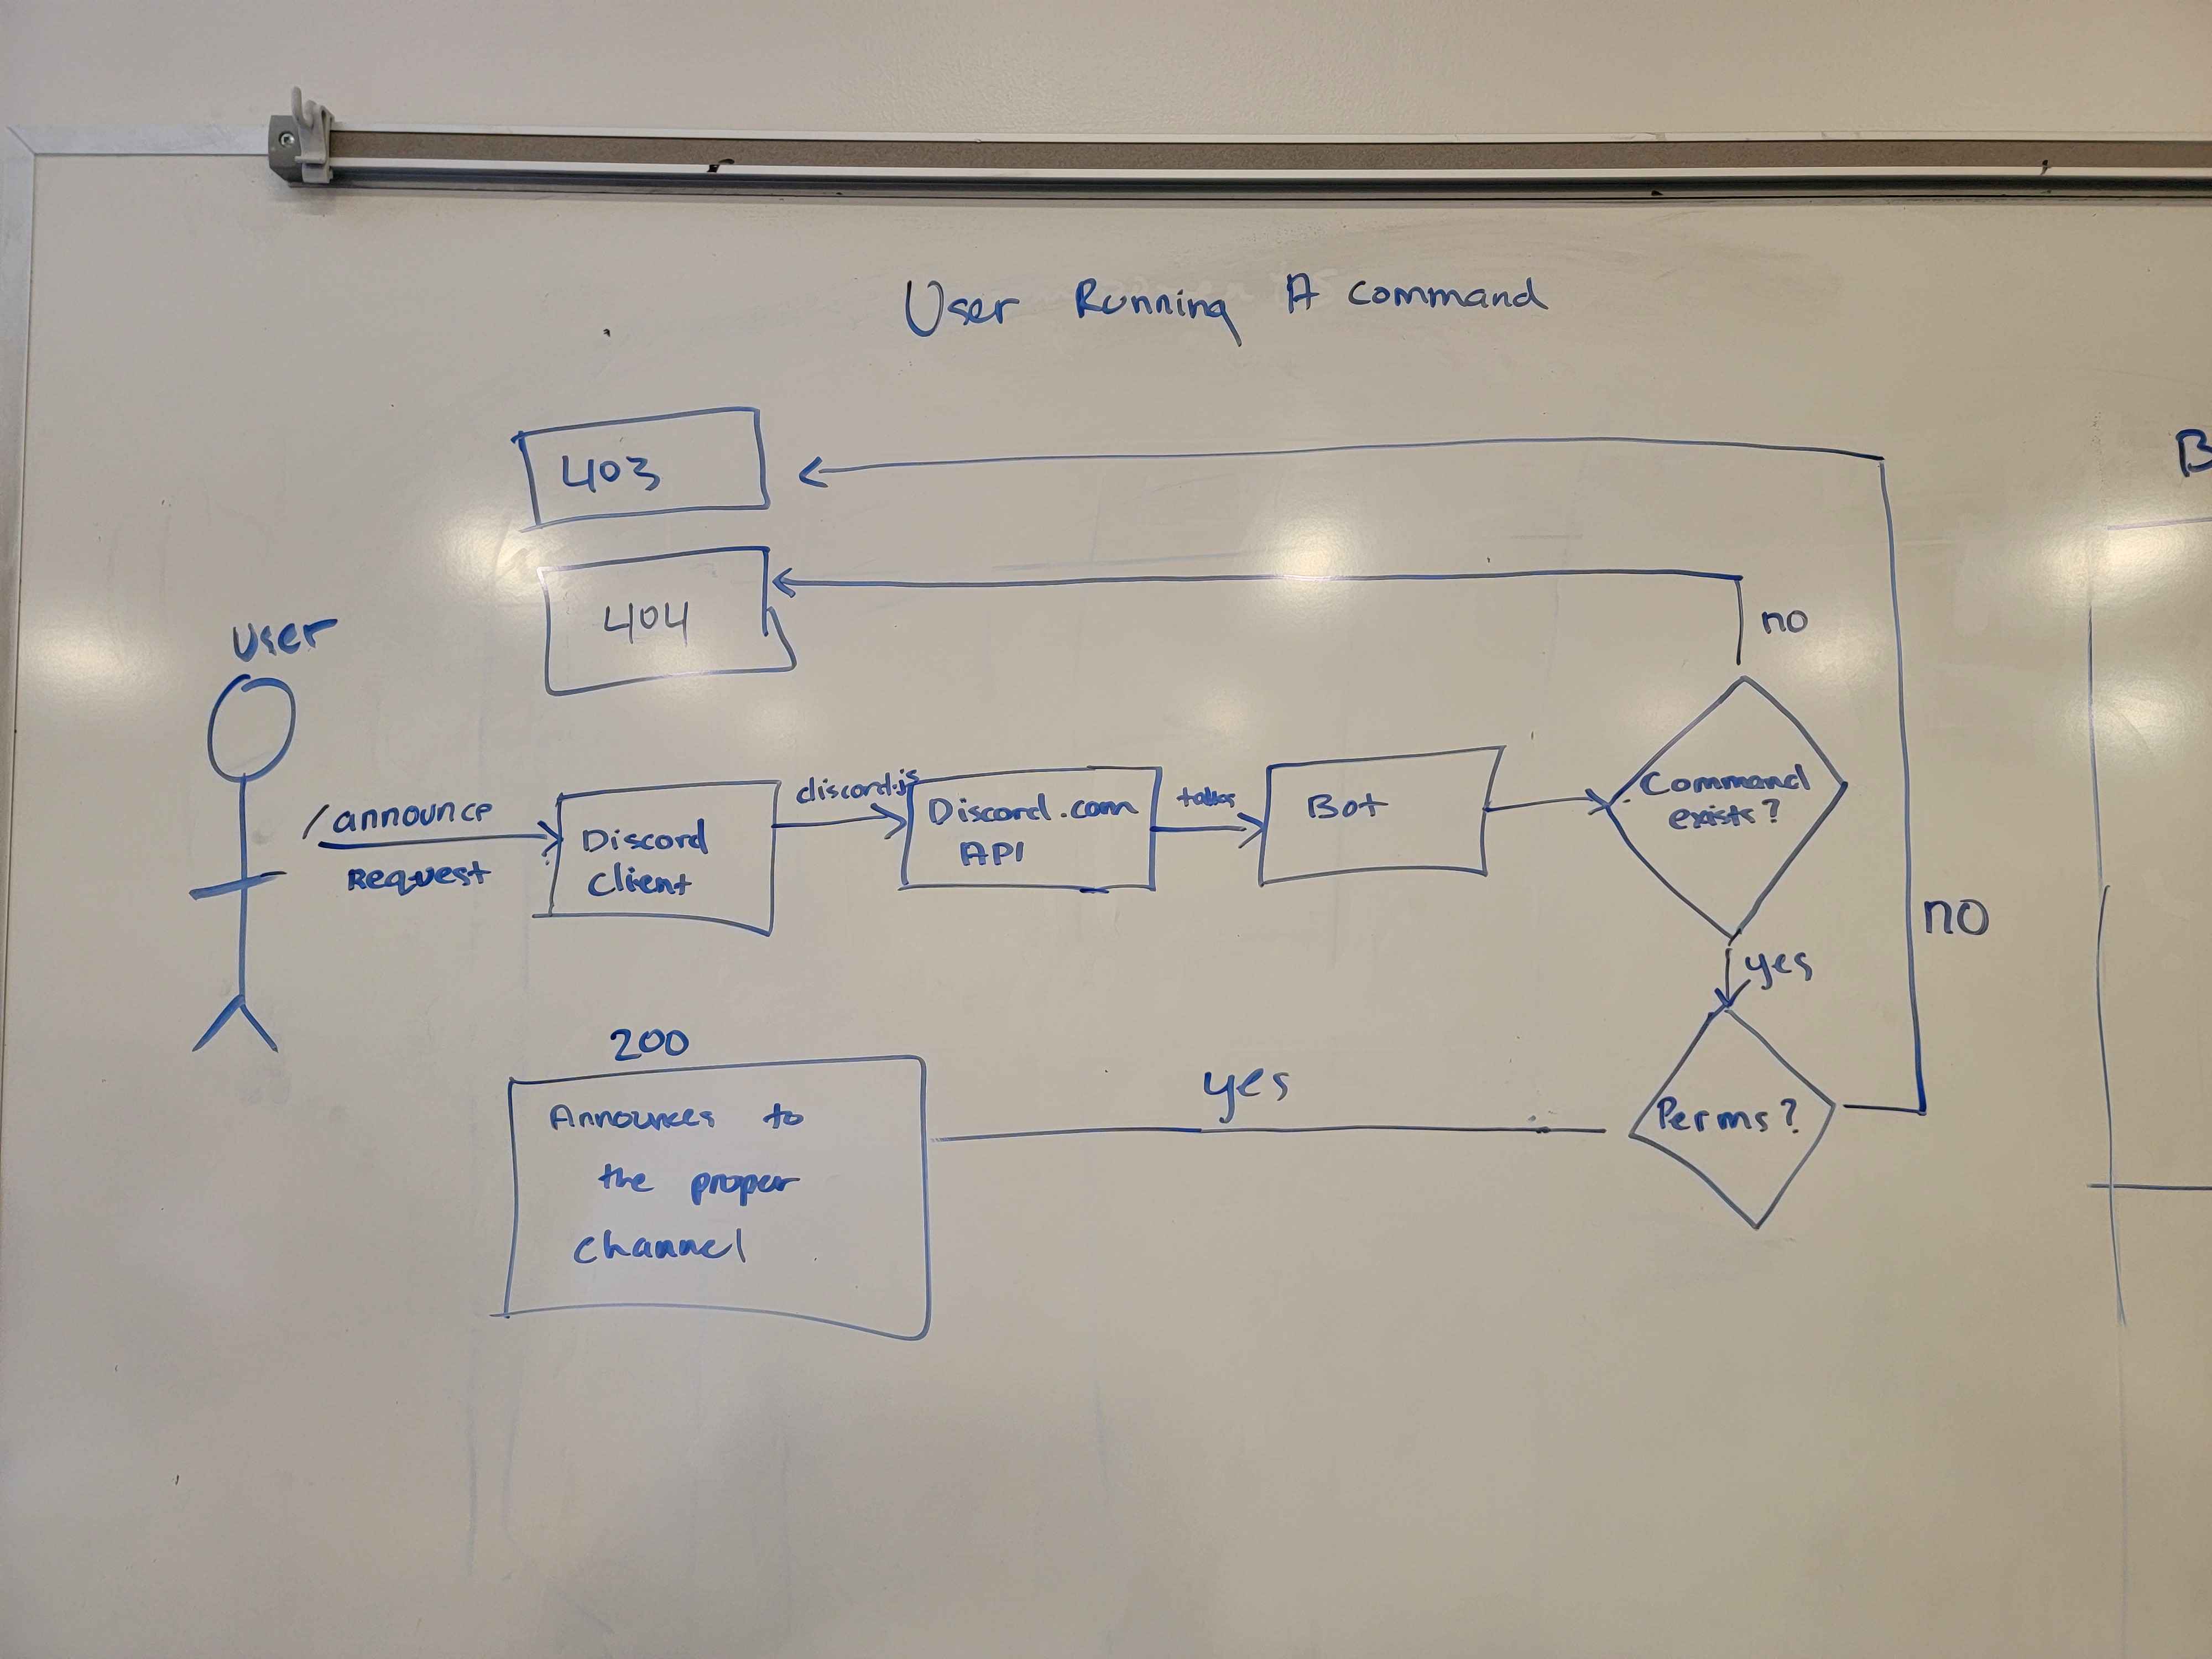 User Running A command
403
404
no
User
/announce
Request
Discord
Client
discord.js
Discord.com
API
talks
Bot
Command
exists?
no
yes
200
Announces to
the proper
channel
yes
Perms?
B